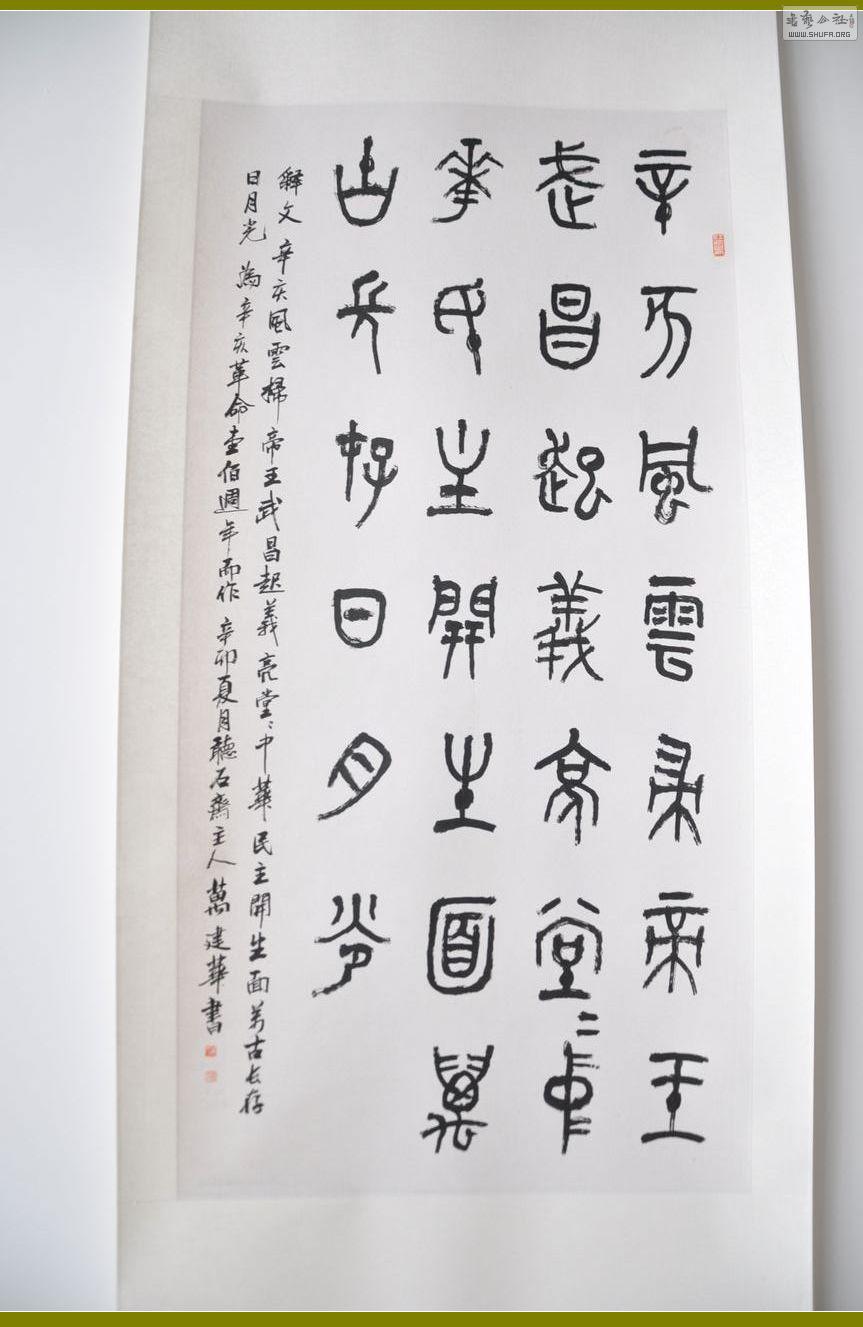 辛亥風雲掃帝王
武昌起義亮堂〻中
華民主開生面萬
古長存日月光
釋文 辛亥風雲掃帝王武昌起義亮堂〻中華民主開生面萬古长存
日月光 為辛亥革命壹佰週年而作 辛卯夏月聽石齋主人萬建華書
WWW.SHUFA.ORG